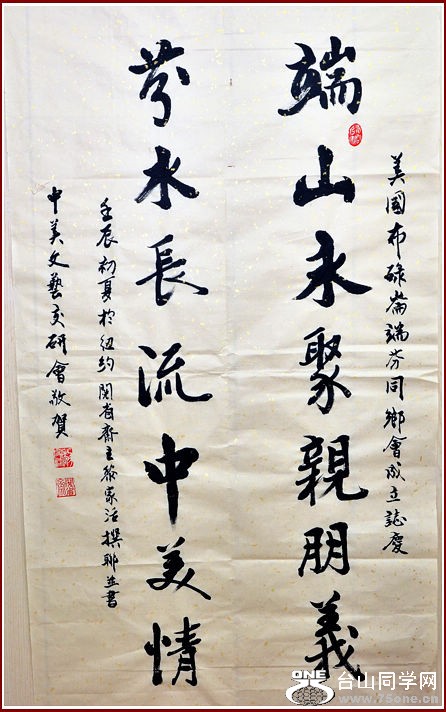 美國布碌崙端芬同鄉會成立誌慶
端山永聚親朋義
芬水長流中美情
壬辰初夏於紐約閱省齋主黎家活撰聯並書
中美文藝交研會敬賀
ONE
台山同学网
www.75one.cn